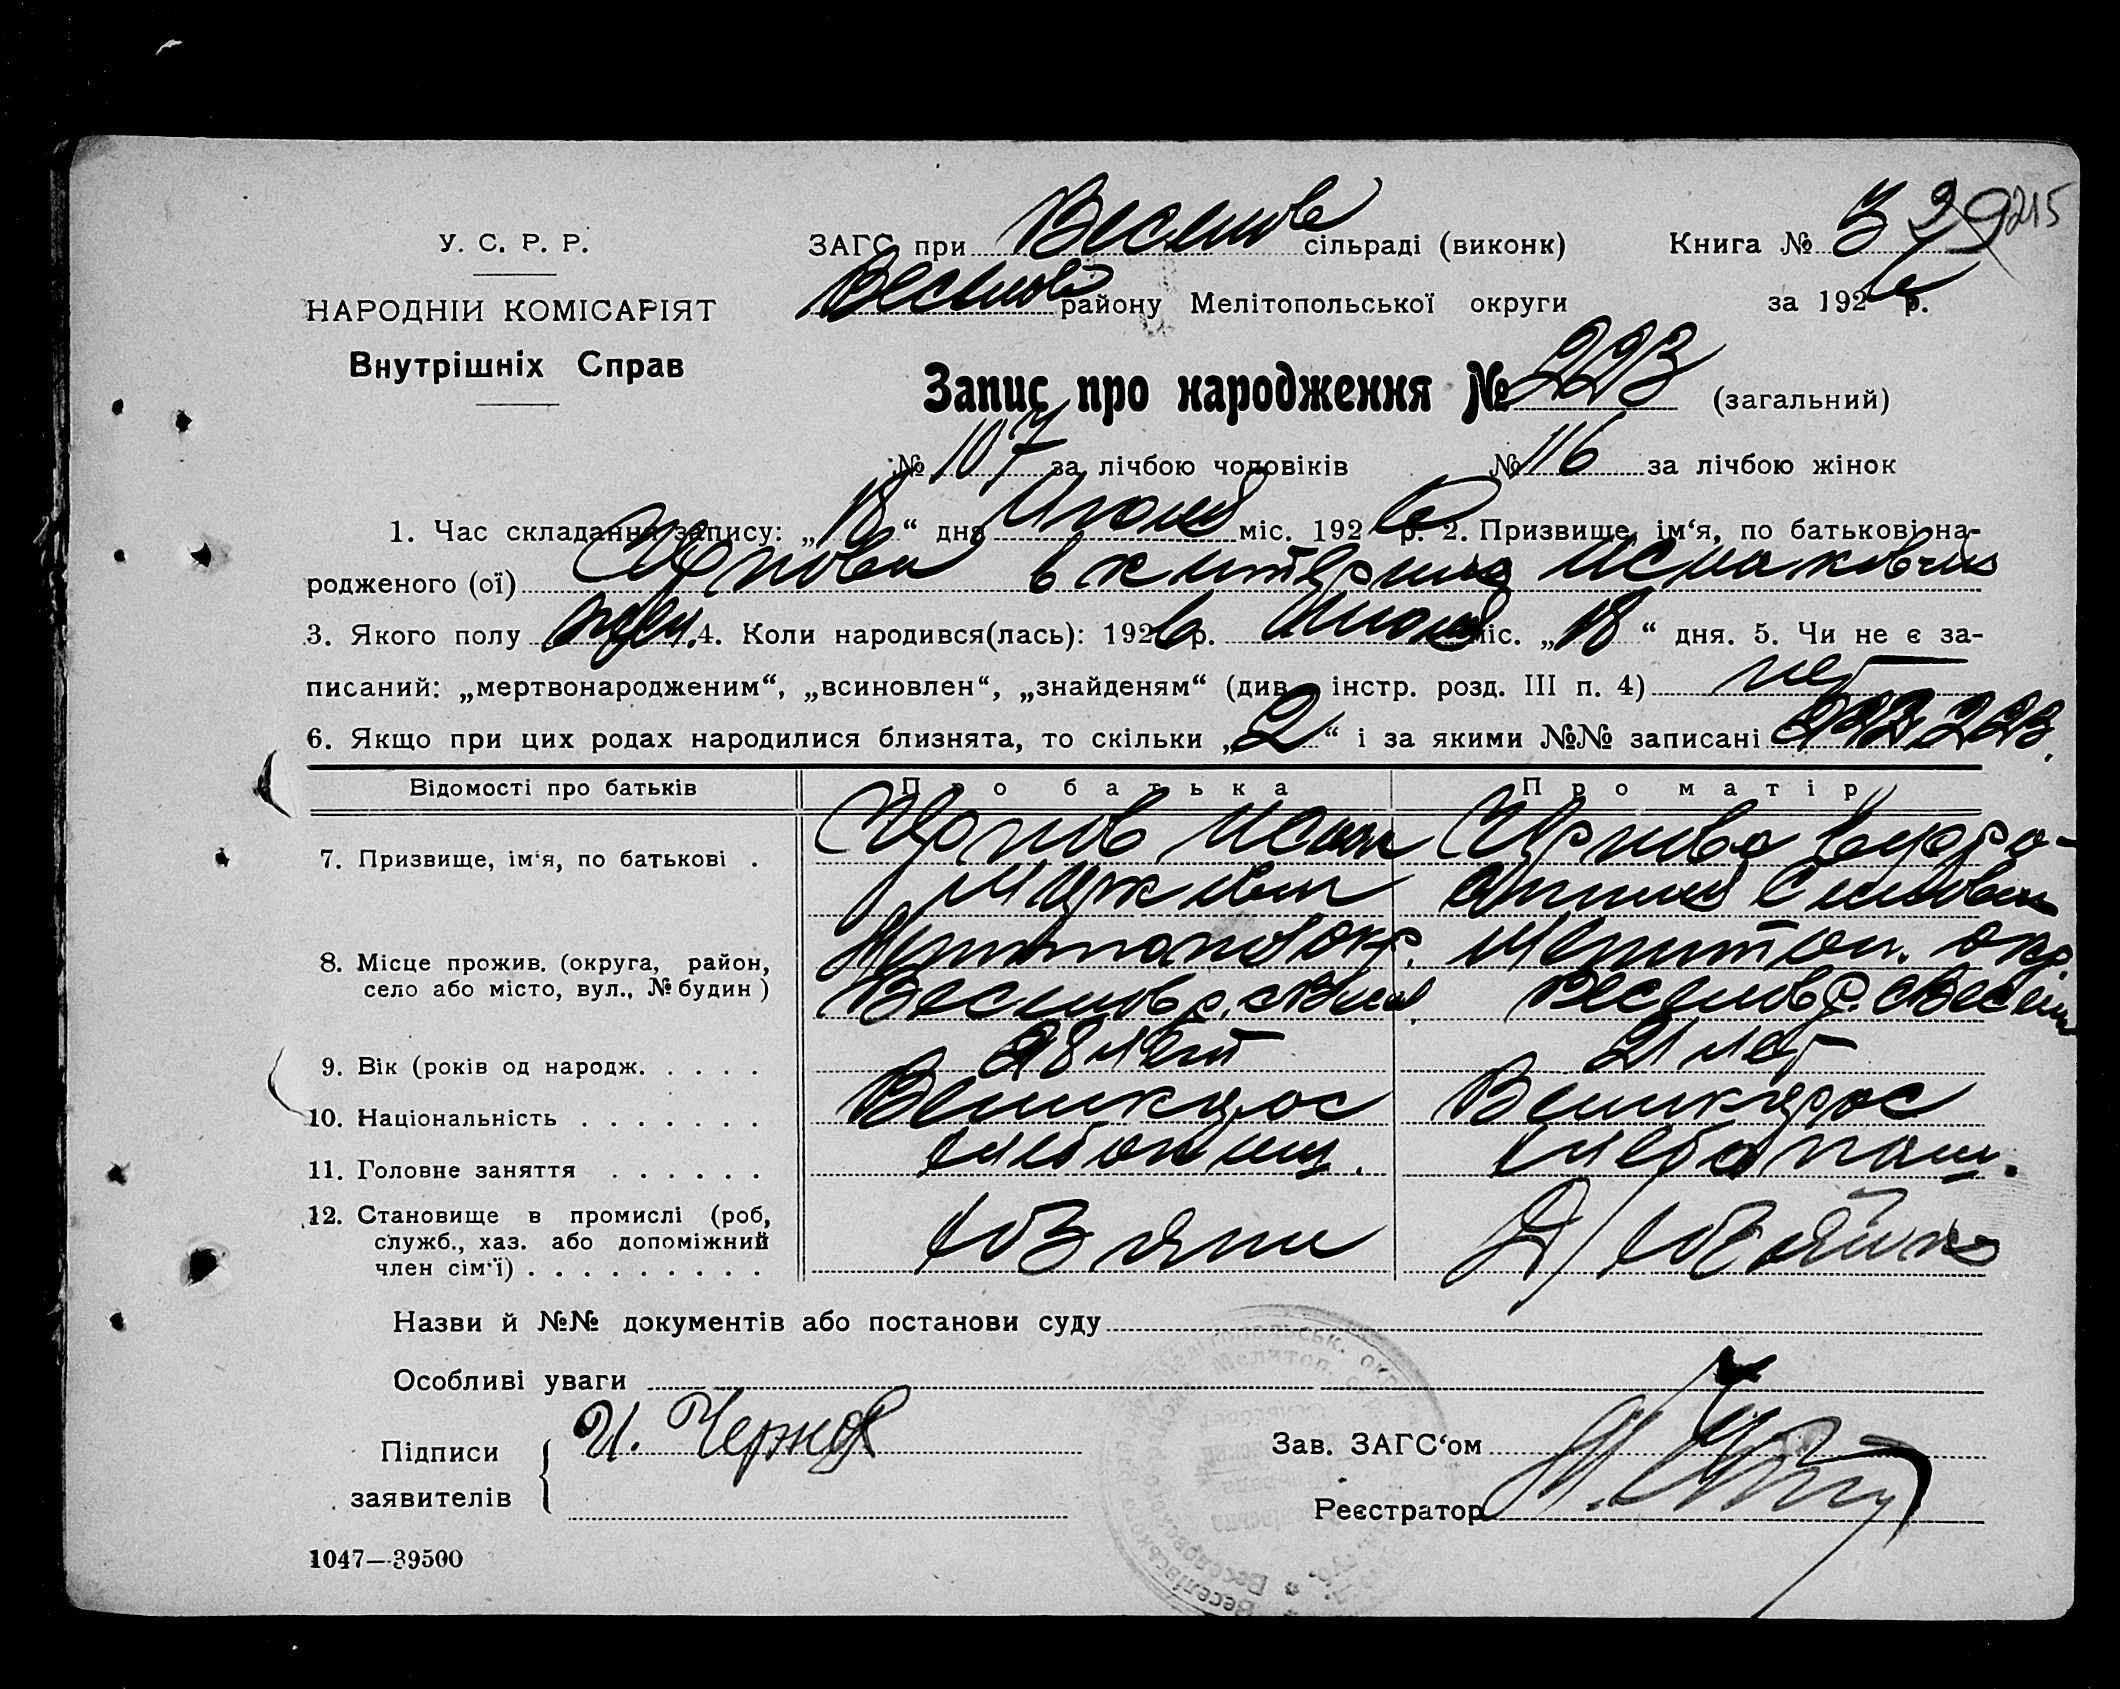 У. С. Р. Р.
НАРОДНІЙ КОМІСАРІЯТ
Внутрішніх Справ
ЗАГС при Веселов сільраді (виконк)
Веселов району Мелітопольської округи
Книга № 3
215
за 1926 р.
Запис про народження № 223 (загальний)
№ 107 за лічбою чоловіків № 116 за лічбою жінок
1. Час складання запису: „18“ дня міс. 1926 р. 2. Призвище, ім‘я, по батькові на-
родженого (ої) Чернова Екатерина Исааковна
3. Якого полу жен. 4. Коли народився(лась): 1926 р. міс. „18“ дня. 5. Чи не є за-
писаний: „мертвонародженим“, „всиновлен“, „знайденям“ (див. інстр. розд. III п. 4) нет
6. Якщо при цих родах народилися близнята, то скільки „2“ і за якими №№ записані 222, 223.
Відомості про батьків Про батька Про матір
7. Призвище, ім‘я, по батькові . Чернов Исаак Чернова Евфро-
синия
8. Місце прожив. (округа, район, Мелитополь окр. Мелитоп. окр.
село або місто, вул., № будин) Веселов р. с Весел. Веселов р. с Веселое
9. Вік (років од народж. . . . . 28 лет 21 лет
10. Національність . . . . . . . Великорос Великорос
11. Головне заняття . . . . . . хлебопаш. хлебопаш.
12. Становище в промислі (роб,
служб., хаз. або допоміжний
член сім‘ї) . . . . . . . . . хозяин
Назви й №№ документів або постанови суду
Особливі уваги
Підписи И. Чернов Зав. ЗАГС‘ом
заявителів Реєстратор
1047—39500